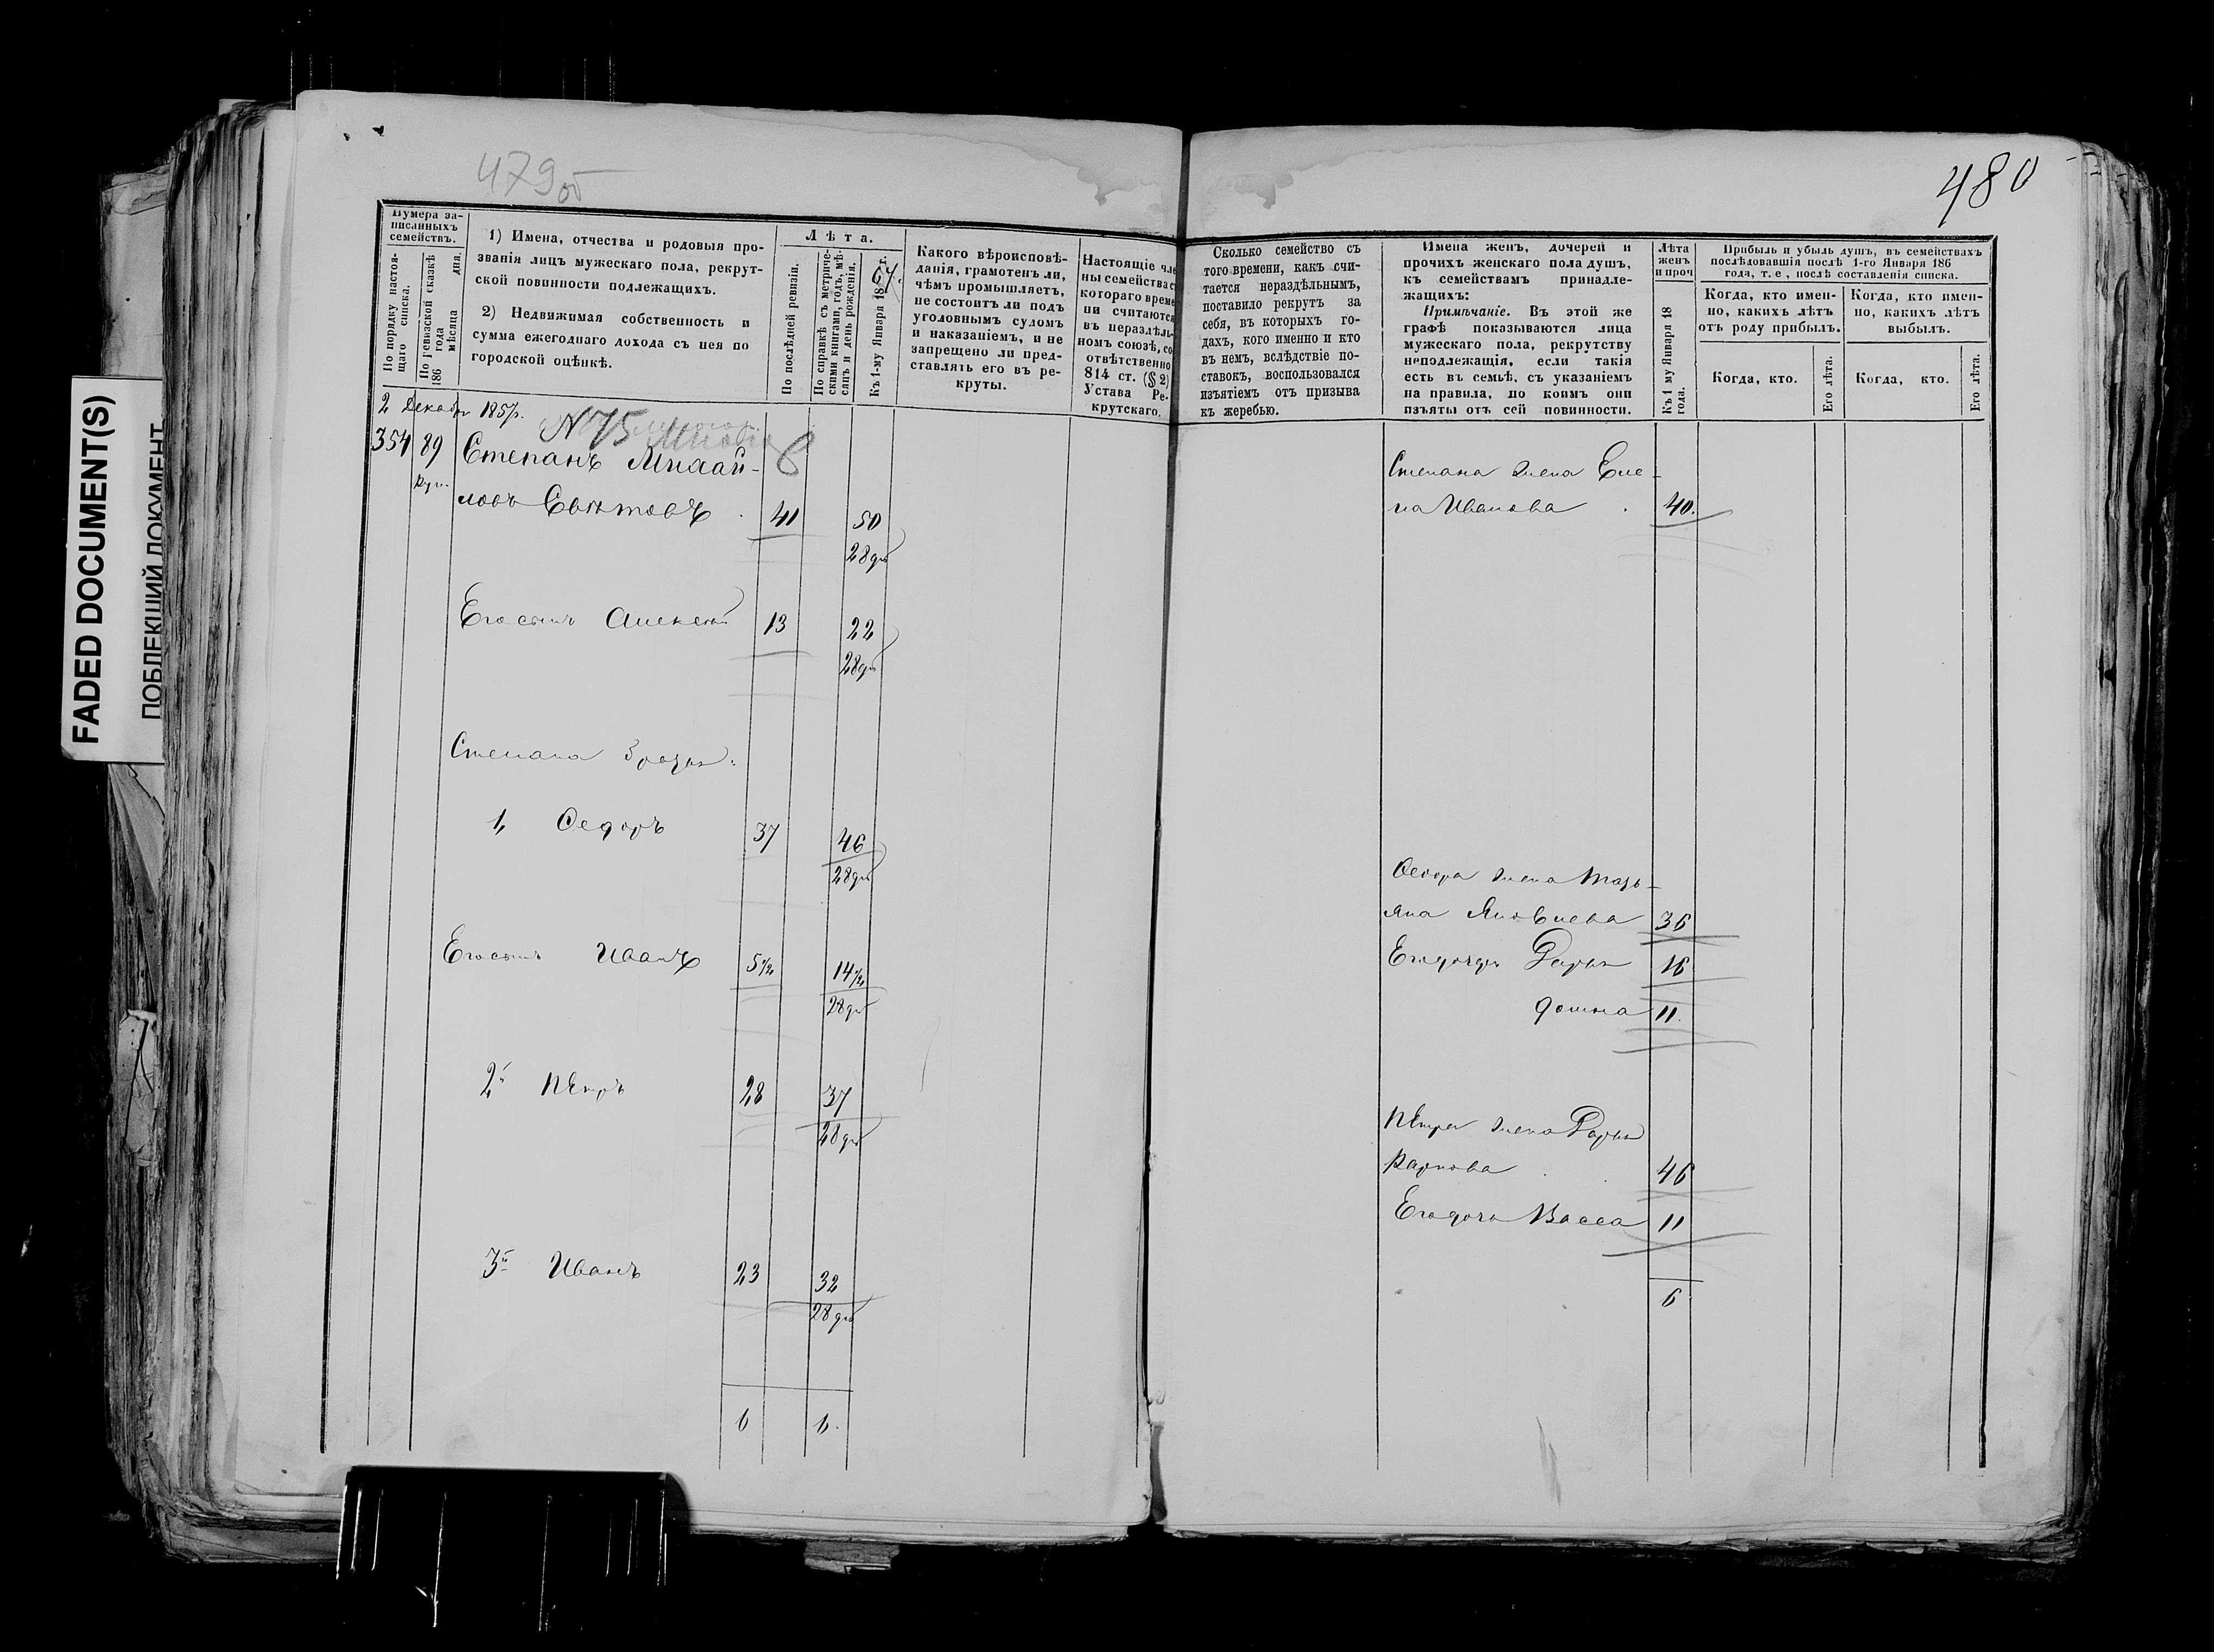 FADED DOCUMENT(S)
ПОБЛЕКШИЙ ДОКУМЕНТ
479 об
Нумера за-
писанныхъ
семействъ.
По порядку настоя-
щаго списка.
По ревизской сказкѣ
186 года
мѣсяца дня.
1) Имена, отчества и родовыя про-
званія лицъ мужескаго пола, рекрут-
ской повинности подлежащихъ.
2) Недвижимая собственность и
сумма ежегоднаго дохода съ нея по
городской оцѣнкѣ.
Лѣта.
По послѣдней ревизіи.
По справкѣ съ метриче-
скими книгами, годъ, мѣ-
сяцъ и день рожденія.
Къ 1-му Января 1867 г.
Какого вѣроисповѣ-
данія, грамотенъ ли,
чѣмъ промышляетъ,
не состоитъ ли подъ
уголовнымъ судомъ
и наказаніемъ, и не
запрещено ли пред-
ставлять его въ ре-
круты.
Настоящіе чле
ны семейства с
котораго време
ни считаются
въ нераздѣль-
номъ союзѣ, со
отвѣтственно
814 ст. (§ 2)
Устава Ре-
крутскаго.
2 Декабр 1857г.
N 75
354 89 Степанъ Михай-
ловъ Свѣтовъ 41 50
28 дек
Его сынъ Алексѣй 13 22
28 дек
Степана братья:
1, Федоръ 37 46
28 дек
Его сынъ Иванъ 5 1/2 14 1/2
28 дек
2й Петръ 28 37
28 дек
3й Иванъ 23 32
28 дек
6 6.
480
Сколько семейство съ
того времени, какъ счи-
тается нераздѣльнымъ,
поставило рекрутъ за
себя, въ которыхъ го-
дахъ, кого именно и кто
въ немъ, вслѣдствіе по-
ставокъ, воспользовался
изъятіемъ отъ призыва
къ жеребью.
Имена женъ, дочерей и
прочихъ женскаго пола душъ,
къ семействамъ принадле-
жащихъ:
Примѣчаніе. Въ этой же
графѣ показываются лица
мужескаго пола, рекрутству
неподлежащія, если такія
есть въ семьѣ, съ указаніемъ
на правила, по коимъ они
изъяты отъ сей повинности.
Лѣта
женъ
и проч
Къ 1 му Января 18
года.
Прибыль и убыль душъ, въ семействахъ
послѣдовавшія послѣ 1-го Января 186
года, т. е., послѣ составленія списка.
Когда, кто имен-
но, какихъ лѣтъ
отъ роду прибылъ.
Когда, кто имен-
но, какихъ лѣтъ
выбылъ.
Когда, кто.
Его лѣта.
Когда, кто.
Его лѣта.
Степана жена Еле-
на Иванова 40.
Федора жена Тать-
яна Яковлева 36
Его дочери Дарья 16
Домна 11.
Петра жена Дарья
Карпова 46
Его дочь Васса 11
6